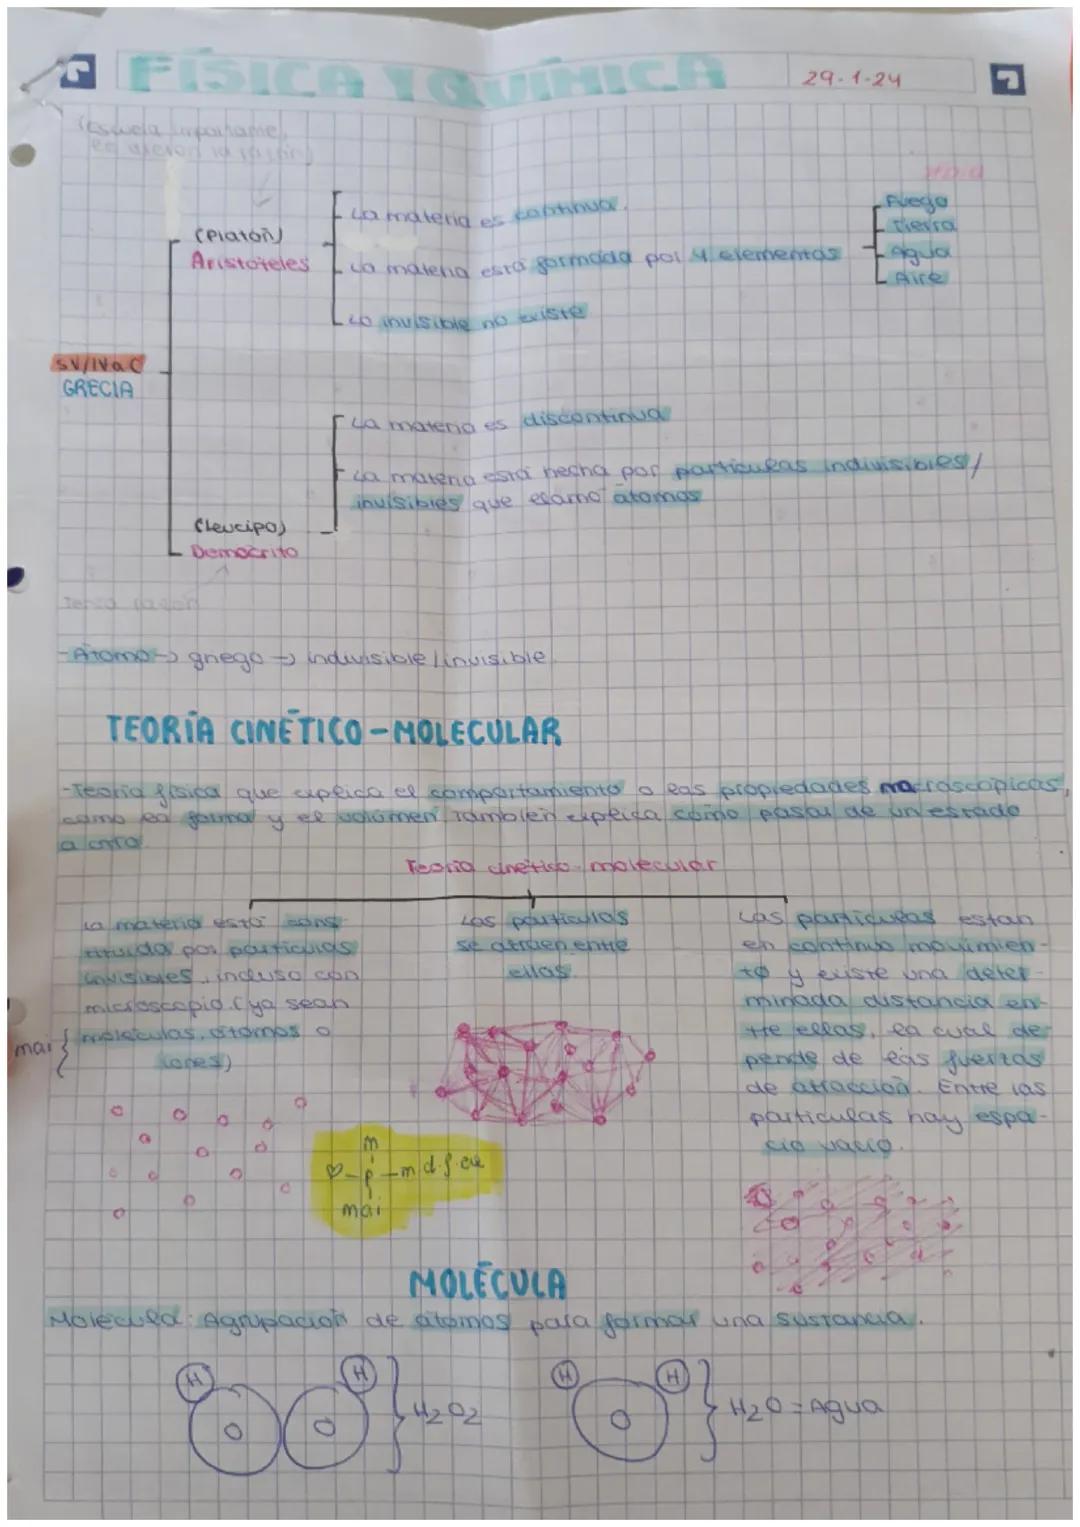 FÍSICA Y QUÍMICA
29-1-24
(escuela importante,
le dieron la razón)
(Platón)
Aristóteles
La materia es continua.
La materia está formada por 4 elementos
Lo invisible no existe
Fuego
Tierra
Agua
Aire
SV/IVa C
GRECIA
La materia es discontinua
La materia está hecha por partículas indivisibles/
invisibles que llamó átomos
(Leucipo)
Demócrito
Tenía razón
-Átomo→ griego → indivisible/invisible
TEORÍA CINÉTICO-MOLECULAR
-Teoría física que explica el comportamiento o las propiedades macroscópicas,
como la forma y el volúmen también explica cómo pasar de un estado
a otro
Teoría cinético-molecular
La materia está cons-
tituida por partículas
invisibles, incluso con
microscopio (ya sean
moléculas, átomos o
iones)
mai
Las partículas
se atraen entre
ellas.
Las partículas estan
en continuo movimien-
to y existe una deter-
minada distancia en-
tre ellas, la cual de-
pende de las fuerzas
de atracción. Entre las
partículas hay espa-
cio vacío.
m
p - m d.f.
mai
MOLÉCULA
Molécula: Agrupación de átomos para formar una sustancia.
H H
O O
H2O2
H H
O
H2O = Agua